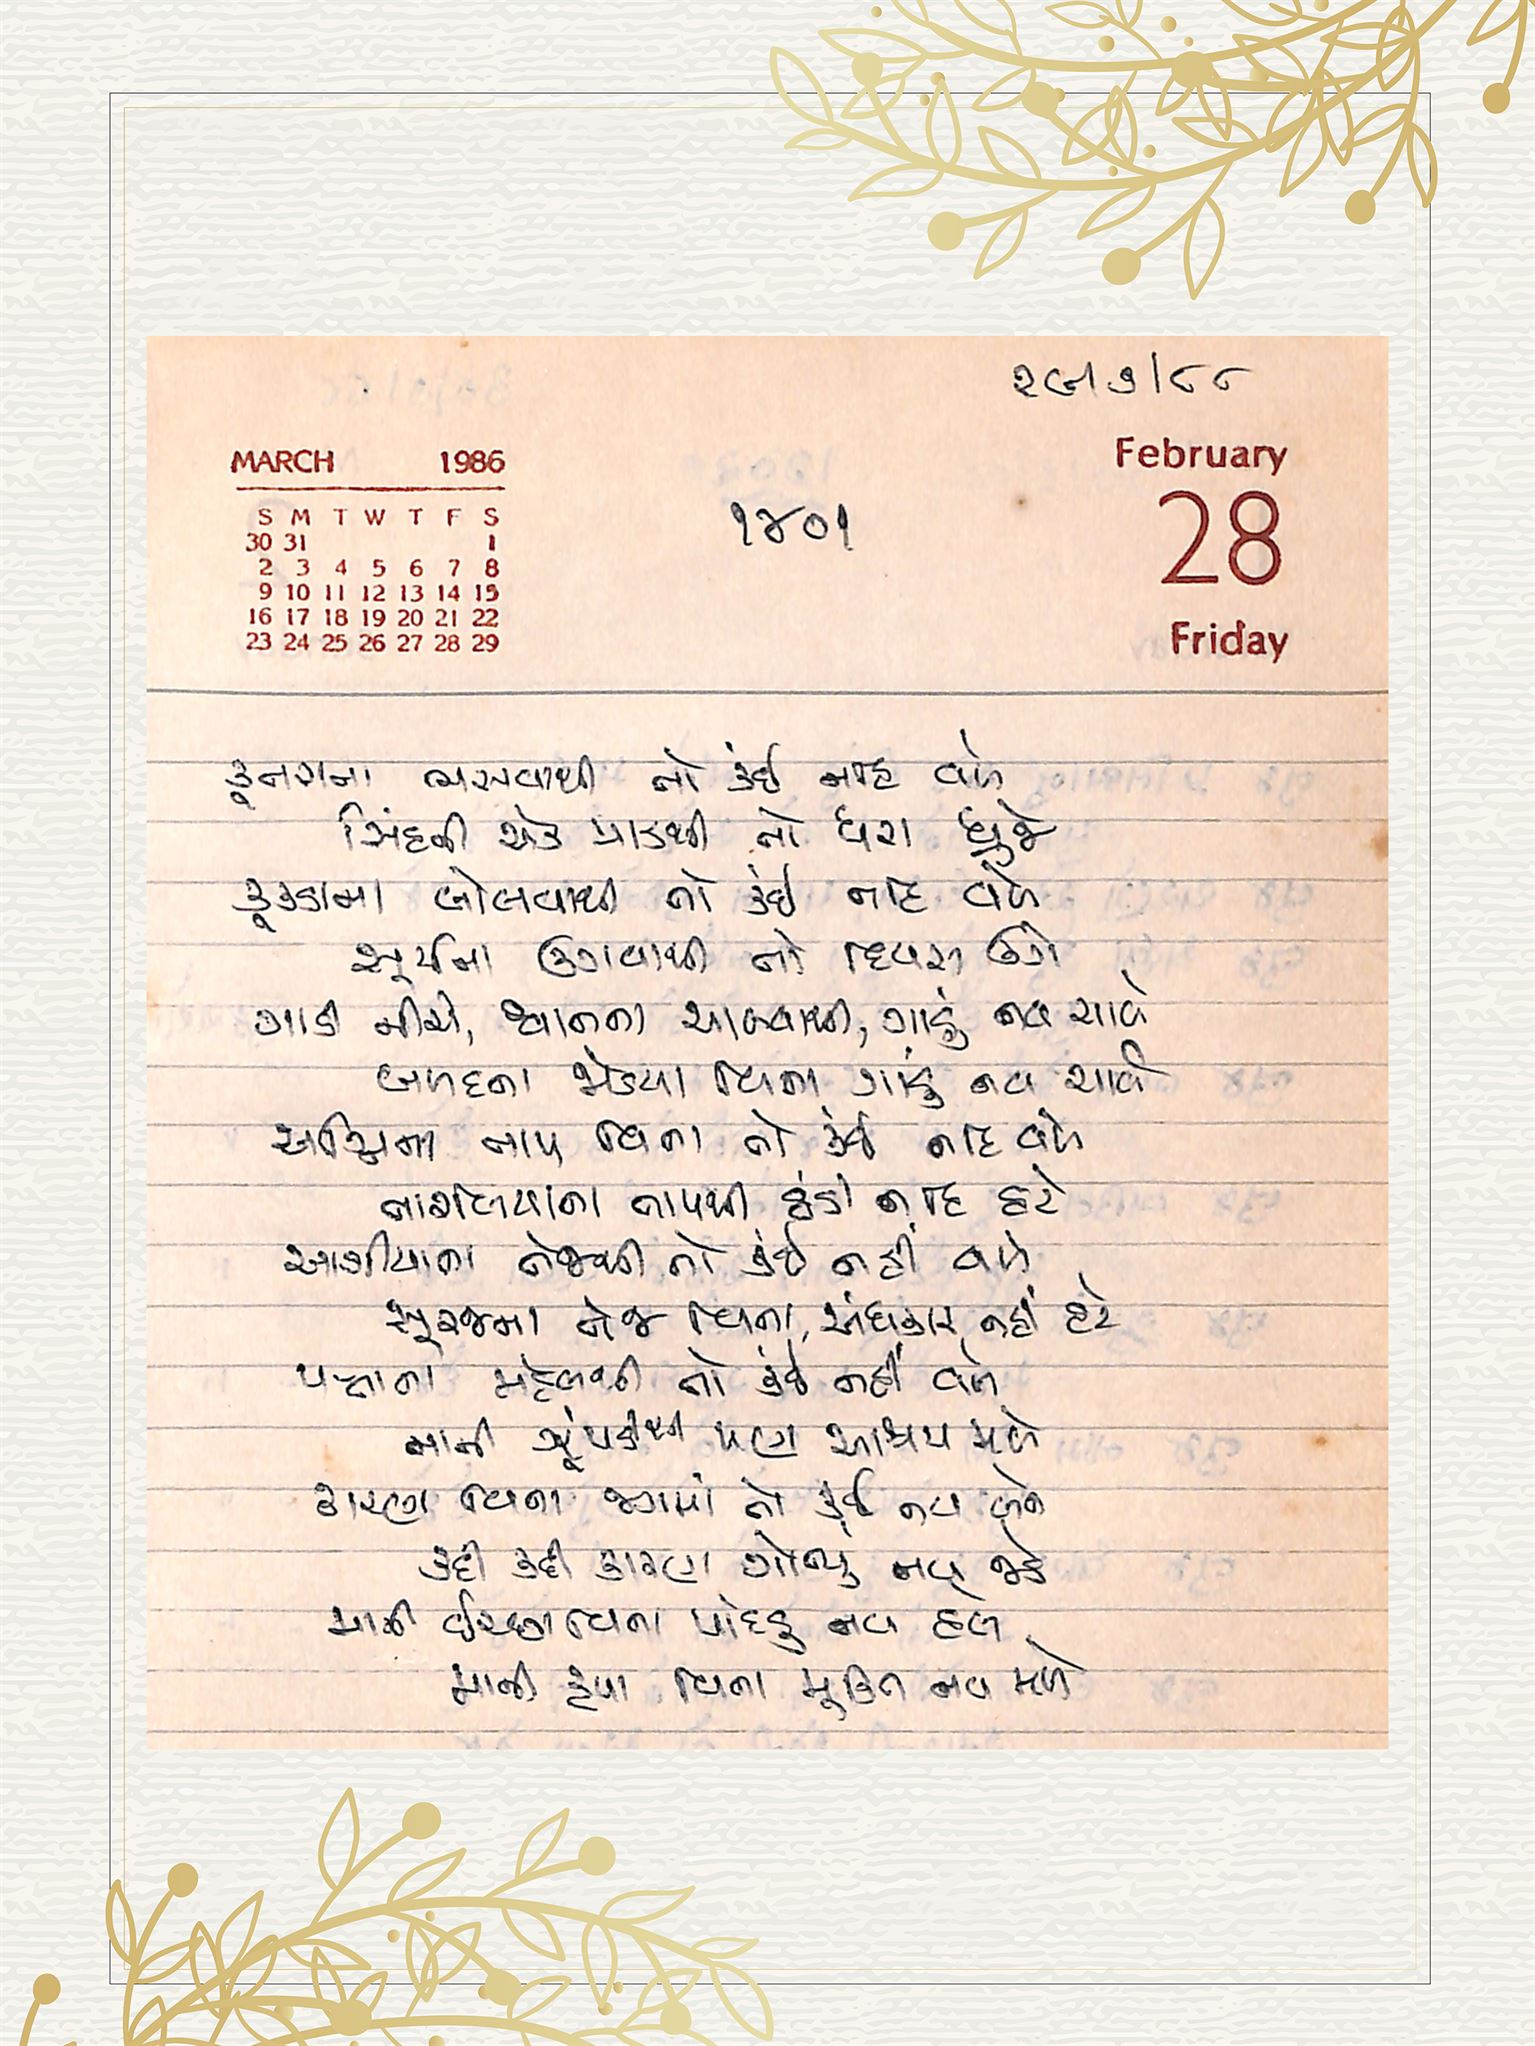 ૨૯/૭/૮૮
MARCH 1986
S M T W T F S
30 31 1
2 3 4 5 6 7 8
9 10 11 12 13 14 15
16 17 18 19 20 21 22
23 24 25 26 27 28 29
૧૪૦૧
February
28
Friday
કૂતરાના ભસવાથી તો કંઈ નહિ વળે
સિંહની એક ત્રાડથી તો ધરા ધ્રુજે
કૂકડાના બોલવાથી તો કંઈ નહિ વળે
સૂર્યના ઉગવાથી તો દિવસ ઉગે
ગાડી નીચે, શ્વાનના ચાલવાથી, ગાડું નવ ચાલે
બળદના જોડયા વિના ગાડું નવ ચાલે
અગ્નિના તાપ વિના તો કંઈ નહિ વળે
તાપણીયાના તાપથી ઠંડી નહિ હટે
આગીયાના તેજથી તો કંઈ નહીં વળે
સૂરજના તેજ વિના, અંધકાર નહીં હટે
પત્તાના મહેલથી તો કંઈ નહીં વળે
નાની ઝૂંપડીથી પણ આશ્રય મળે
કારણ વિના જગમાં તો કંઈ નવ બને
કદી કદી કારણ ગોત્યું નવ જડે
માની ઈચ્છા વિના પાંદડુ નવ હલે
માની કૃપા વિના મૂક્તિ નવ મળે